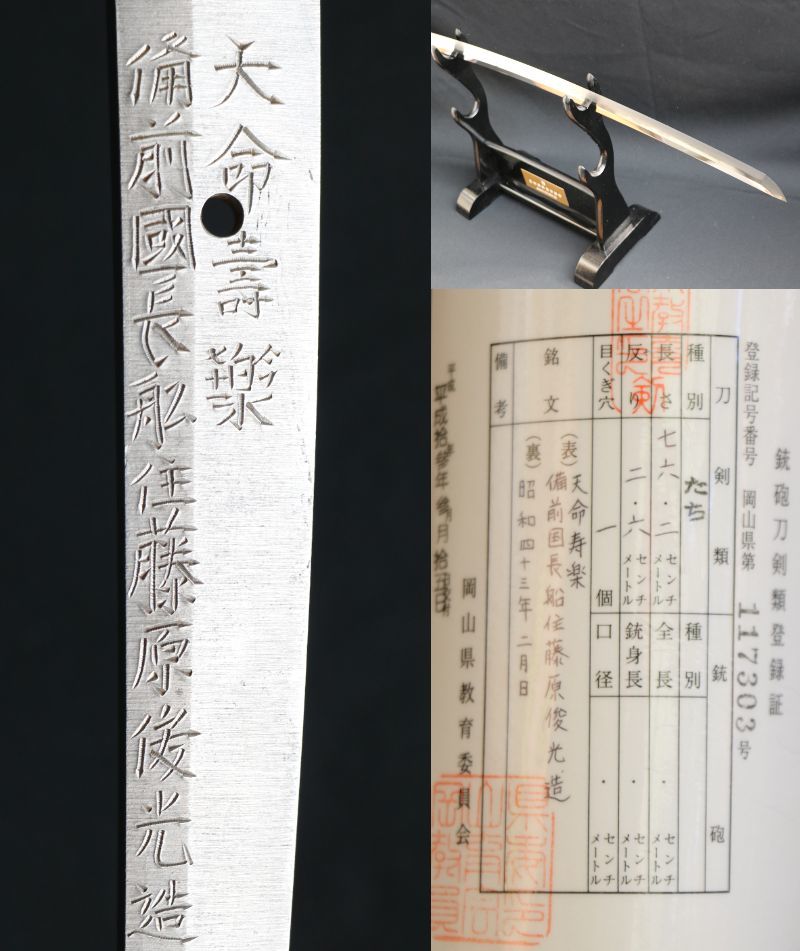 天命壽樂
備前國長船住藤原俊光造
銃砲刀剣類登録証
登録記号番号 岡山県第 117303 号
刀剣類 銃砲
種別 たち 種別
長さ 七六・二 センチメートル 全長 ・ センチメートル
反り 二・六 センチメートル 銃身長 ・ センチメートル
目くぎ穴 一 個 口径 ・ センチメートル
銘文 (表) 天命寿楽
備前国長船住藤原俊光造
(裏) 昭和四十三年二月日
備考
岡山県教育委員会